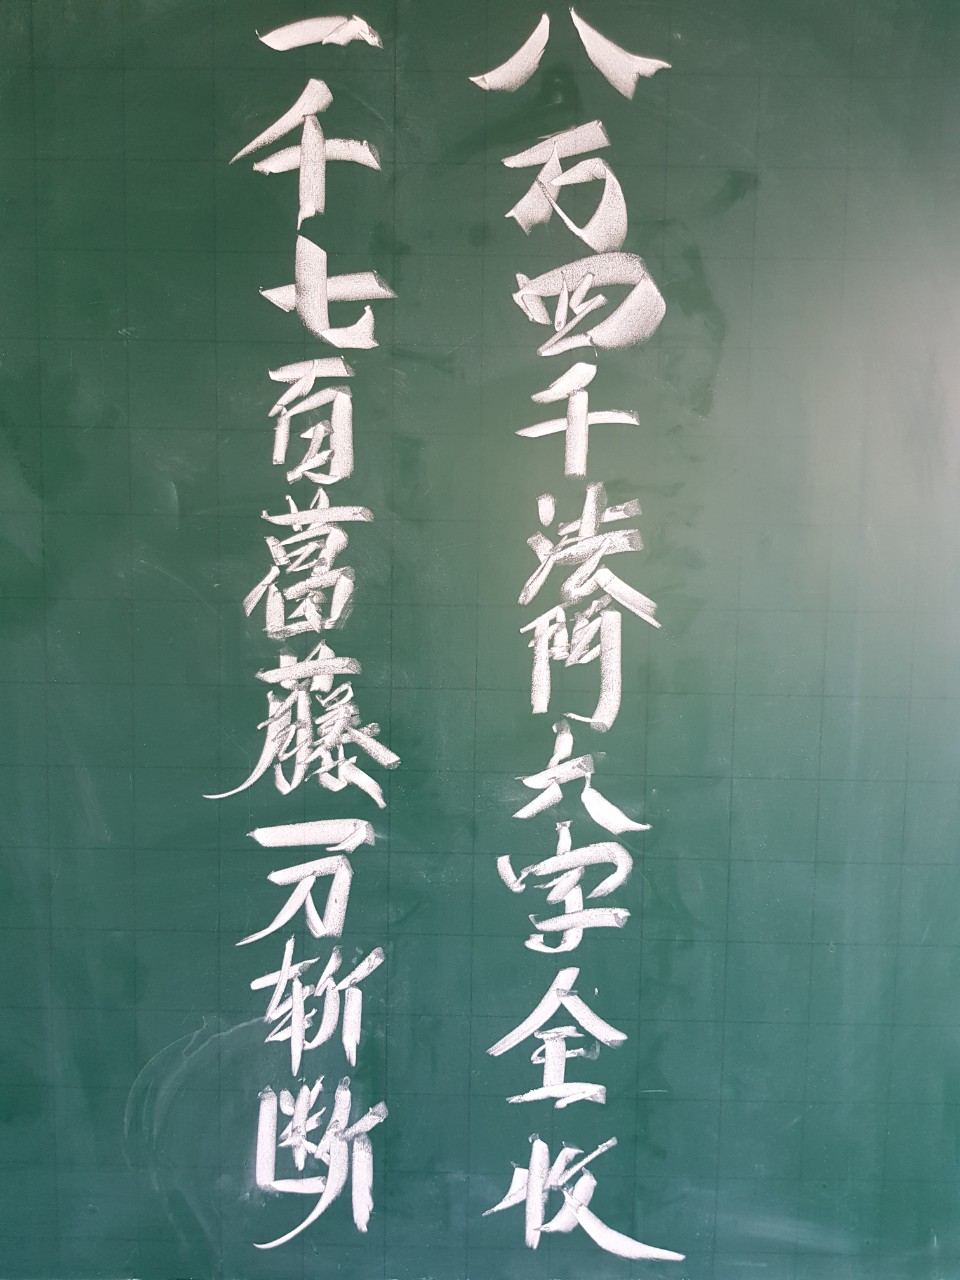 八万四千法門六字全收
一千七百葛藤一刀斬断